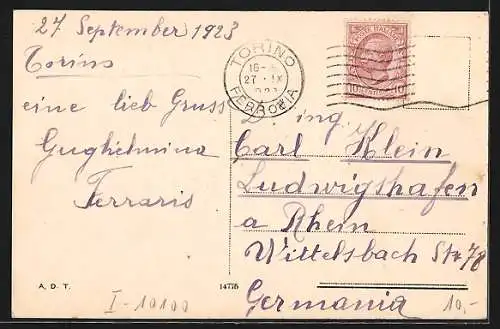 27 September 1923
Torino
eine lieb Gruss
Gughielmina
Ferraris
TORINO
16-
27 IX
FERROVIA
POSTE ITALIANE
10 10
D. ing.
Carl Klein
Ludwigshafen
a Rhein
Wittelsbach Str 78
Germania
A. D. T.
14775
I-10100
10,-